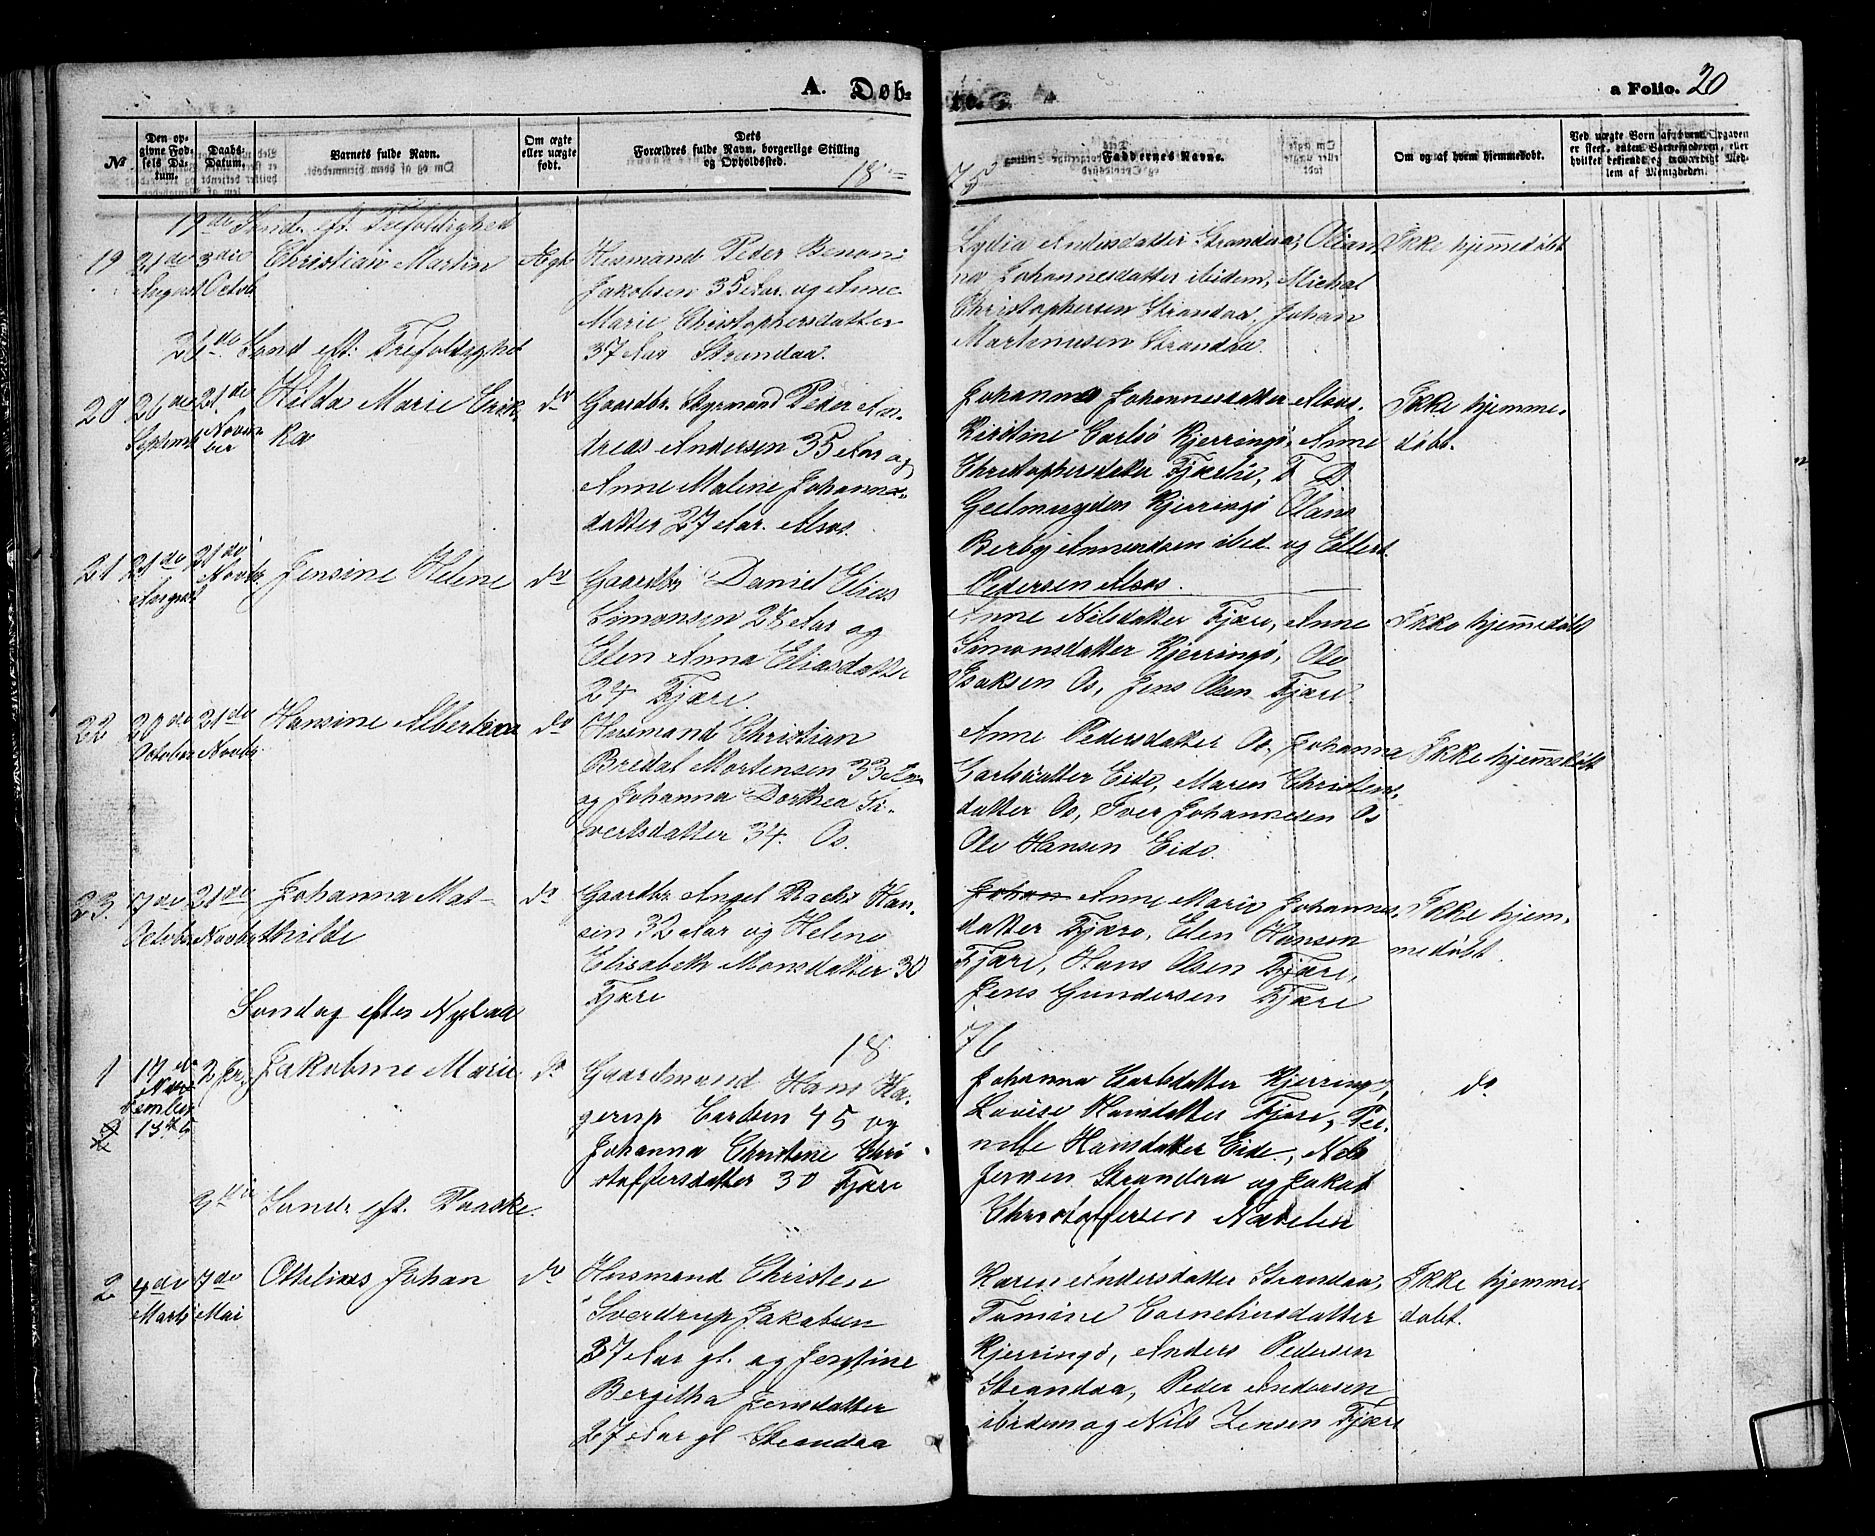 A. Døb-
te.
a Folio. 20
No
Den op-
givne Fød-
sels Da-
tum.
Daabs-
Datum.
Barnets fulde Navn.
Om ægte
eller uægte
født.
Dets
Forældres fulde Navn, borgerlige Stilling
og Opholdssted.
Faddernes Navne.
Om og af hvem hjemmedøbt.
Ved uægte Børn
18
75
19de Sønd. eft. Trefoldighed
19
21de
August
3die
Octob
Christian Martin
Ægte
Husmand Peder Benoni
Jakobsen 35 Aar og Anne
Marie Christophersdatter
37 Aar Strandaa.
Lydia Andersdatter Strandaa, Olian
na Johannesdatter ibidem, Michal
Christophersen Strandaa, Johan
Martinusen Strandaa.
Ikke hjemmedøbt
Sønd eft: Trefoldighed
20
26de
Septemb
21de
Novem
ber
Hilda Marie Erik
ka
do
Gaardbr. Styrmand Peder An-
dreas Andersen 35 Aar og
Anne Malene Johannes-
datter 27 Aar. Alsos.
Johanna Johannesdatter Alsos.
Kirstine Carlsø Kjerringø, Anne
Christophersdatter Fjærlie, F D
Geelmuyden Kjerringø Claus
Berby Amundsen ibid. og Ellert
Pedersen Alsos.
Ikke hjemme-
døbt.
21
21de
August
21de
Novbr
Jensine Helene
do
Gaardbr Daniel Elias
Simonsen 28 Aar og
Elen Anna Eliasdatter
24 Fjære.
Anne Nilsdatter Fjære, Anne
Simonsdatter Kjerringø, Ole
Isaksen Os, Jens Olsen Fjære.
Ikke hjemmedøbt
22
20de
October
21de
Novbr
Hansine Albertina
do
Husmand Christian
Bredal Mortensen 33 Aar
og Johanna Dorthea Si-
vertsdatter 34. Os.
Anne Pedersdatter Os, Johanna
Carlsdatter Eide, Maren Christens
datter Os, Iver Johannesen Os
Ole Hansen Eide.
Ikke hjemmedøbt
23.
7de
Octobr
21de
Novbr
Johanna Mat-
thilde
do
Gaardbr Angel Bachs Han-
sin 32 Aar og Helene
Elisabeth Monsdatter 30
Fjære
Johan Anne Marie Johannes-
datter Fjære, Elen Hansen
Fjære, Hans Olsen Fjære,
Jens Gundersen Fjære
Ikke hjem-
medøbt.
Søndag efter Nytaar
18
76
1
17de
Novem-
ber
2 Jr
Jakobine Marie
do
Gaardmand Hans Ha-
gerup Carlsen 45 og
Johanna Christine Chri-
stoffersdatter 30 Fjære
Johanna Carlsdatter Kjerringø,
Lovise Hansdatter Fjære, Per-
nille Hansdatter Eide, Nils
Jensen Strandaa og Jakob
Christoffersen Navelen
do
3die Sønd. eft. Paaske.
2
4de
Marts
7de
Mai
Ottelius Johan
do
Husmand Christen
Sverdrup Jakobsen
37 Aar gl. og Justine
Bergitha Jensdatter
27 Aar gl Strandaa
Karen Andersdatter Strandaa,
Tomine Corneliusdatter
Kjerringø, Anders Pedersen
Strandaa, Peder Andersen
ibidem og Nils Jensen Fjære
Ikke hjemme-
døbt.